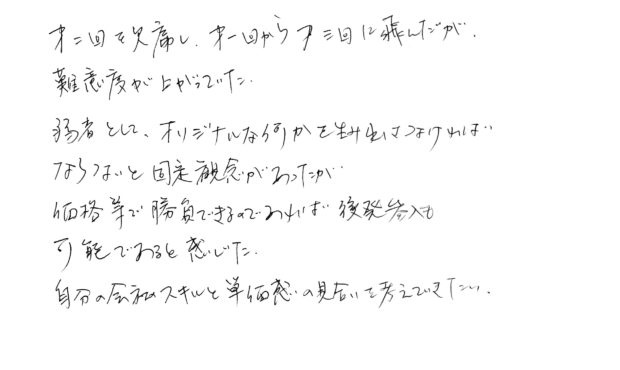 才二回を欠席し、才一回から才三回に飛んだが、
難意度が上がっていた。
弱者として、オリジナルな何かを生み出さなければ
ならないと固定観念があったが
価格等で勝負できるのであれば後発参入も
可能であると感じた。
自分の会社のスキルと単価感の見合いを考えていきたい。